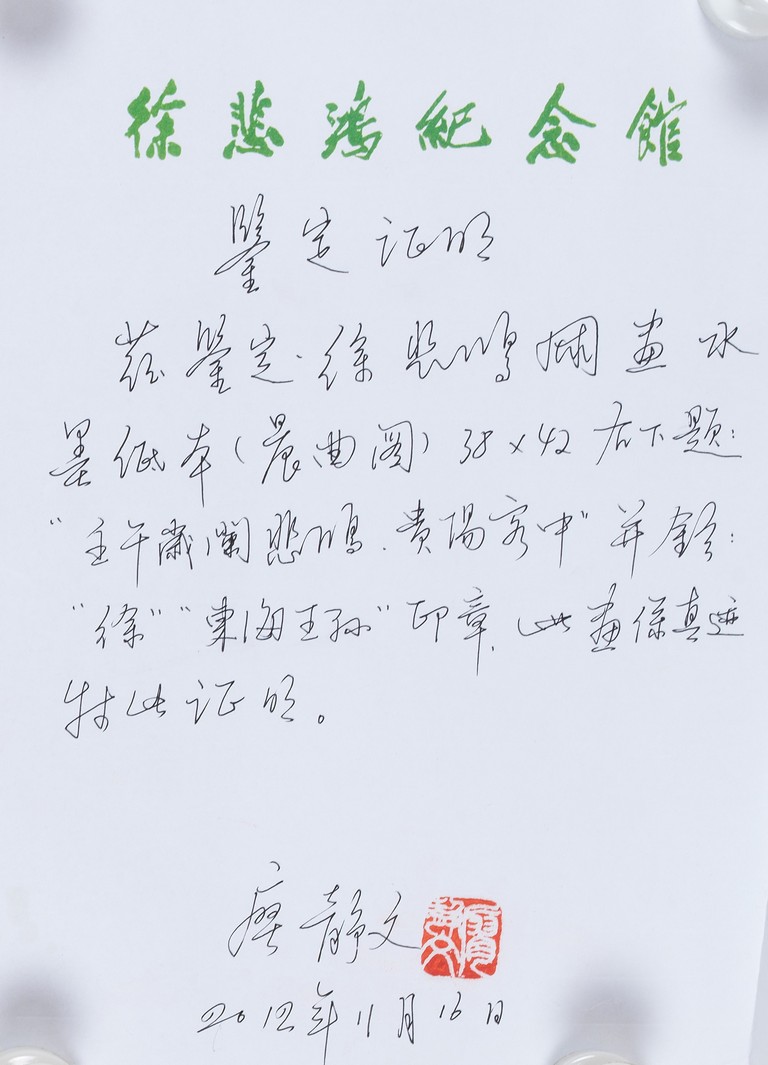 徐悲鸿紀念館
鉴定证明
兹鉴定:徐悲鸿国画水
墨纸本(晨曲图)38×42右下题:
"壬午歲闌悲鴻.貴陽客中"并钤:
"徐""東海王孙"印章,此画係真迹
特此证明。
廖静文
廖静文
2012年11月16日